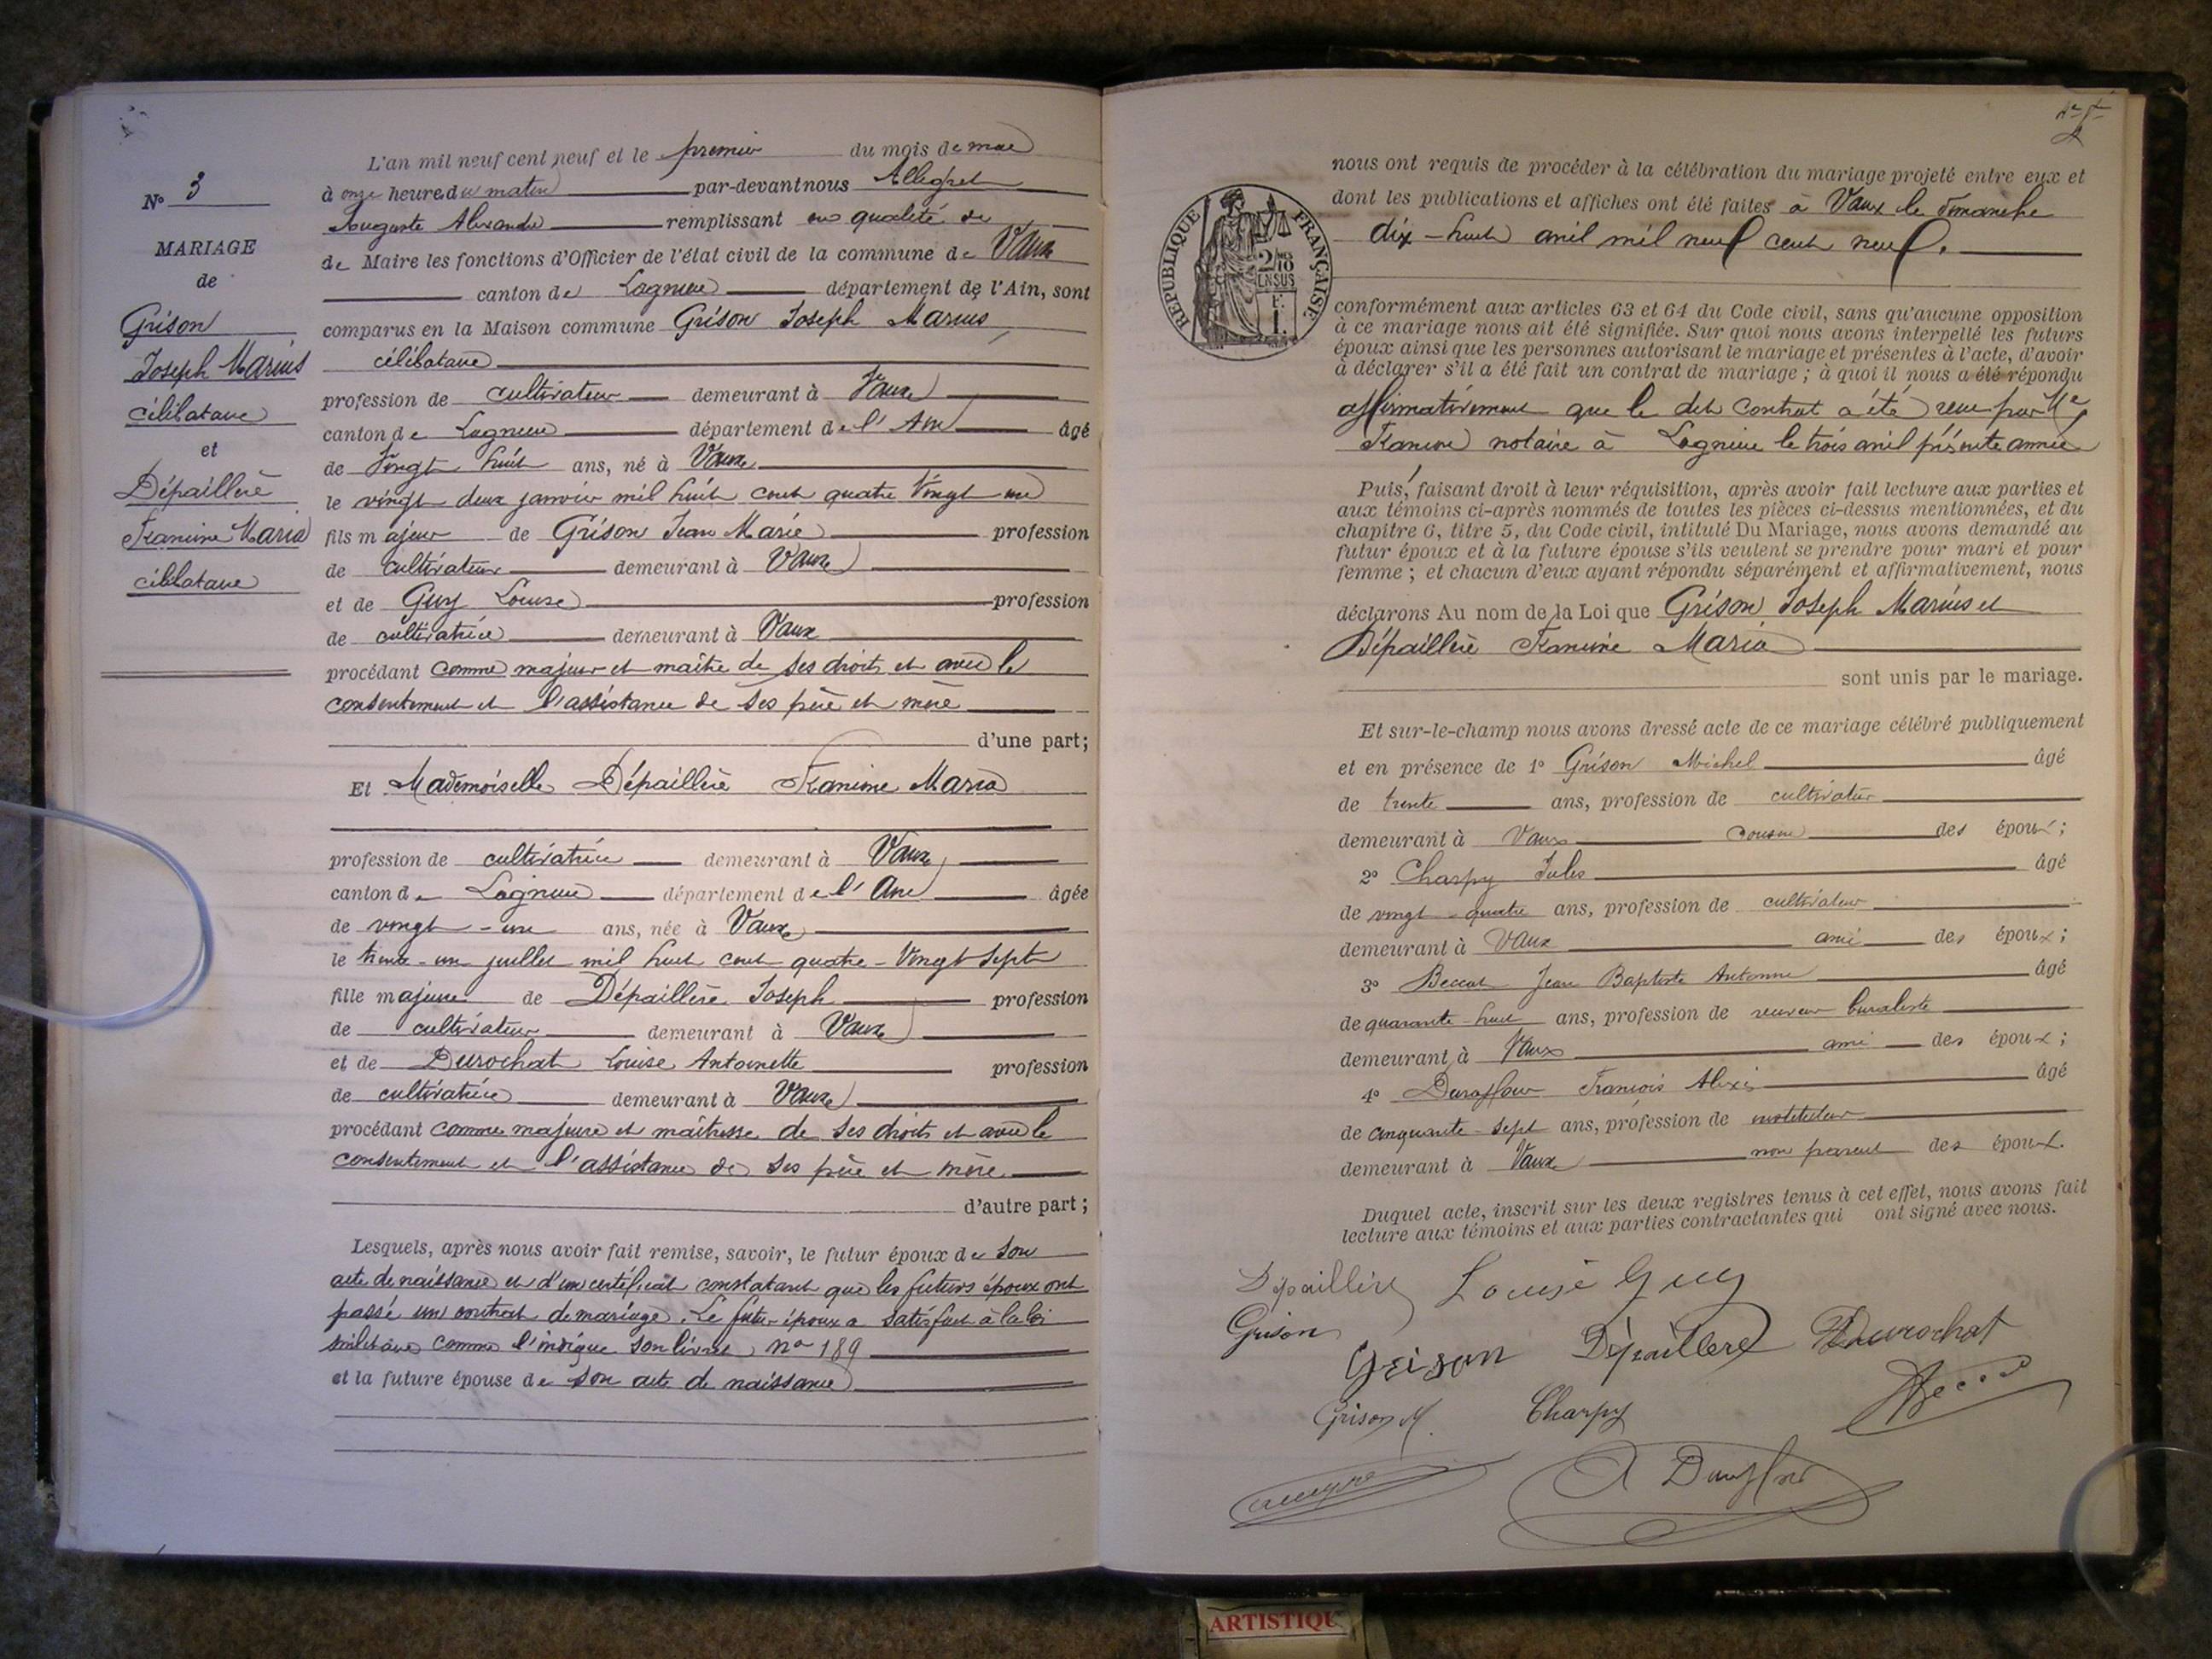 N° 3
MARIAGE
de
Grison
Joseph Marius
célibataire
et
Dépaillère
Francine Maria
célibataire
L'an mil neuf cent neuf et le premier du mois de mai
à onze heures du matin par-devant nous Allegret
Auguste Alexandre remplissant en qualité de
de Maire les fonctions d'Officier de l'état civil de la commune de Vaux
canton de Lagnieu département de l'Ain, sont
comparus en la Maison commune Grison Joseph Marius,
célibataire
profession de cultivateur demeurant à Vaux
canton de Lagnieu département de l'Ain âgé
de vingt huit ans, né à Vaux
le vingt deux janvier mil huit cent quatre vingt un
fils majeur de Grison Jean Marie profession
de cultivateur demeurant à Vaux
et de Guy Louise profession
de cultivatrice demeurant à Vaux
procédant comme majeur et maître de ses droits et avec le
consentement et l'assistance de ses père et mère
d'une part;
Et Mademoiselle Dépaillère Francine Maria
profession de cultivatrice demeurant à Vaux
canton de Lagnieu département de l'Ain âgée
de vingt-un ans, née à Vaux
le trente-un juillet mil huit cent quatre-vingt sept
fille majeure de Dépaillère Joseph profession
de cultivateur demeurant à Vaux
et de Durochat Louise Antoinette profession
de cultivatrice demeurant à Vaux
procédant comme majeure et maîtresse de ses droits et avec le
consentement et l'assistance de ses père et mère
d'autre part;
Lesquels, après nous avoir fait remise, savoir, le futur époux de son
acte de naissance et d'un certificat constatant que les futurs époux ont
passé un contrat de mariage. Le futur époux a satisfait à la loi
militaire comme l'indique son livret n° 189
et la future épouse de son acte de naissance
nous ont requis de procéder à la célébration du mariage projeté entre eux et
dont les publications et affiches ont été faites à Vaux le dimanche
dix-huit avril mil neuf cent neuf.
RÉPUBLIQUE FRANÇAISE
2/10 EN SUS
1 F.
conformément aux articles 63 et 64 du Code civil, sans qu'aucune opposition
à ce mariage nous ait été signifiée. Sur quoi nous avons interpellé les futurs
époux ainsi que les personnes autorisant le mariage et présentes à l'acte, d'avoir
à déclarer s'il a été fait un contrat de mariage; à quoi il nous a été répondu
affirmativement que le dit contrat a été reçu par Me
notaire à Lagnieu le trois avril présente année
Puis, faisant droit à leur réquisition, après avoir fait lecture aux parties et
aux témoins ci-après nommés de toutes les pièces ci-dessus mentionnées, et du
chapitre 6, titre 5, du Code civil, intitulé Du Mariage, nous avons demandé au
futur époux et à la future épouse s'ils veulent se prendre pour mari et pour
femme; et chacun d'eux ayant répondu séparément et affirmativement, nous
déclarons Au nom de la Loi que Grison Joseph Marius et
Dépaillère Francine Maria
sont unis par le mariage.
Et sur-le-champ nous avons dressé acte de ce mariage célébré publiquement
et en présence de 1° Grison Michel âgé
de trente ans, profession de cultivateur
demeurant à Vaux cousin des époux;
2° Charpy Jules âgé
de vingt-quatre ans, profession de cultivateur
demeurant à Vaux ami des époux;
3° Beccat Jean Baptiste Antoine âgé
de quarante-huit ans, profession de receveur buraliste
demeurant à Vaux ami des époux;
4° Duraffour François Alexis âgé
de cinquante-sept ans, profession de instituteur
demeurant à Vaux non parent des époux.
Duquel acte, inscrit sur les deux registres tenus à cet effet, nous avons fait
lecture aux témoins et aux parties contractantes qui ont signé avec nous.
Dépaillère Louise Guy
Grison
Grison Dépaillère Durochat
Grison M. Charpy
A Duraffour
ARTISTIQU